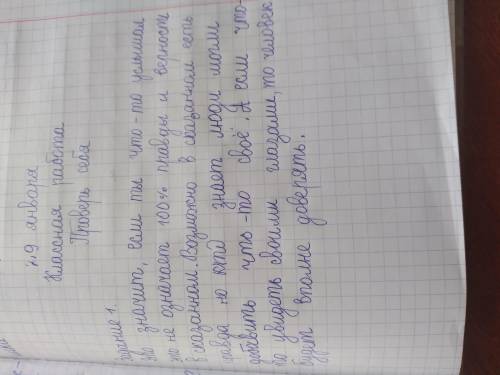 29 января
Классная работа
Проверь себя
Задание 1.
Это значит, если ты что-то услышал
это не означает 100% правды и верности
в сказанном. Возможно в сказанном есть
правда но кто знает люди могли
добавить что-то своё. А если что-
то увидеть своими глазами, то человек
будет вполне доверять.